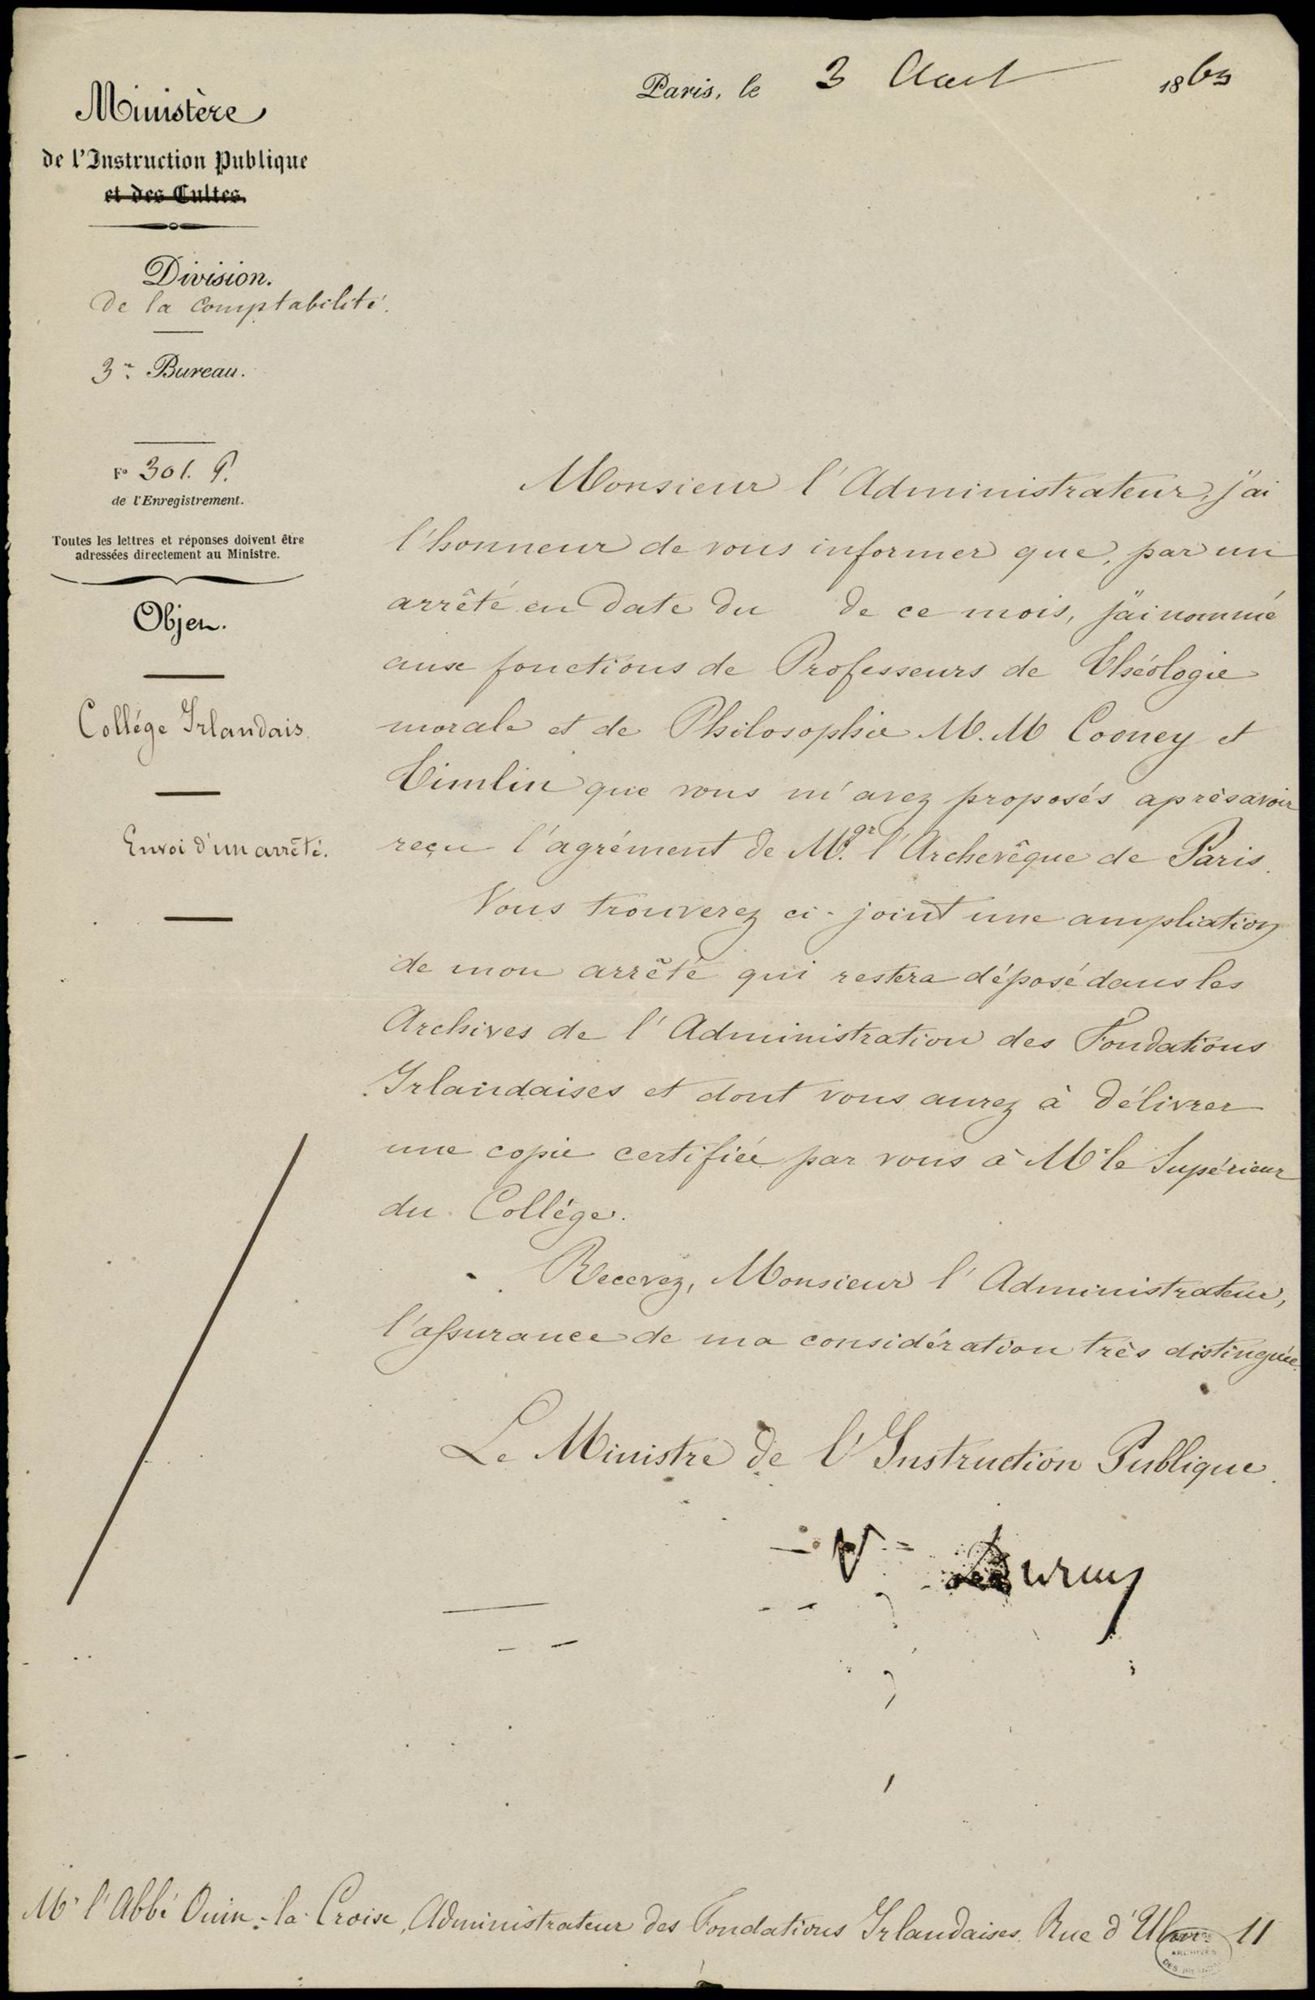 Paris, le 3 Aout 1863
Ministère
de l'Instruction Publique
et des Cultes.
Division.
de la comptabilité.
3e Bureau.
Fo 301. P.
de l'Enregistrement.
Toutes les lettres et réponses doivent être
adressées directement au Ministre.
Objet.
Collége Irlandais
Envoi d'un arrêté.
Monsieur l'Administrateur, j'ai
l'honneur de vous informer que, par un
arrêté en date du de ce mois, j'ai nommé
aux fonctions de Professeurs de Théologie
morale et de Philosophie M.M Cooney et
Timlin que vous m'avez proposés après avoir
reçu l'agrément de Mgr. l'Archevêque de Paris.
Vous trouverez ci-joint une ampliation
de mon arrêté qui restera déposé dans les
Archives de l'Administration des Fondations
Irlandaises et dont vous aurez à délivrer
une copie certifiée par vous à Mr le Supérieur
du Collége.
Recevez, Monsieur l'Administrateur,
l'assurance de ma considération très distinguée.
Le Ministre de l'Instruction Publique.
V Duruy
Mr l'Abbé Ouin-la-Croix, Administrateur des Fondations Irlandaises. Rue d'Ulm 11
ARCHIVES